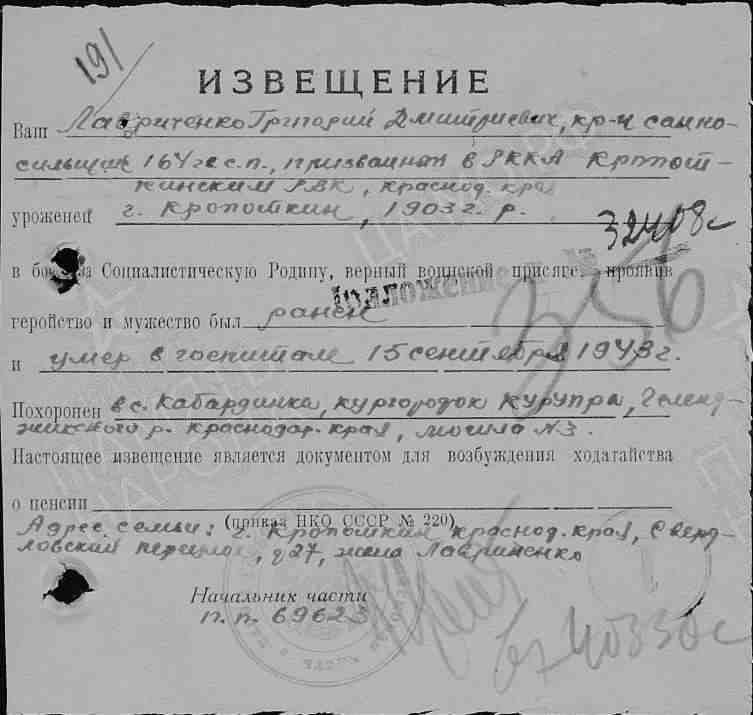 191
ИЗВЕЩЕНИЕ
Ваш Лавриненко Григорий Дмитриевич, кр-ц санно-
сильщик 164 гв с.п., призванный в РККА Кропот-
кинским РВК, краснод. края
уроженец г. Кропоткин, 1903 г. р.
32408с
в бою за Социалистическую Родину, верный воинской присяге, проявив
геройство и мужество был ранен
356
и умер в госпитале 15 сентября 1943 г.
Похоронен в с. Кабардинка, кургородок Курупра, Геленд-
жикского р. Краснодар. края, могила №3.
Настоящее извещение является документом для возбуждения ходатайства
о пенсии
(приказ НКО СССР № 220)
Адрес семьи: г. Кропоткин краснод. края, Сверд-
ловский переулок, д 27, жена Лавриненко
Начальник части
п.п. 69623